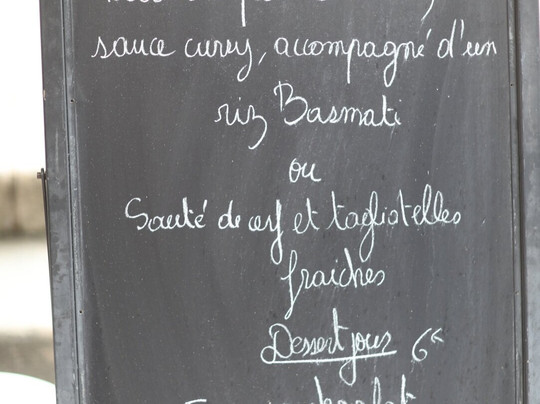 sauce curry, accompagné d'un
riz Basmati
ou
Sauté de œuf et tagliatelles
fraiches
Dessert jour 6€